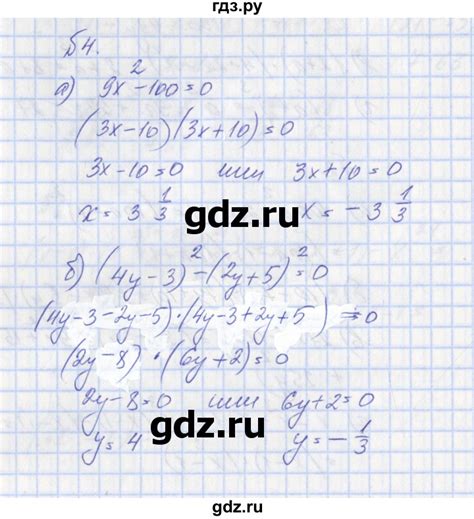 гдз.ру
б4.
а) 9x² - 100 = 0
(3x - 10)(3x + 10) = 0
3x - 10 = 0 или 3x + 10 = 0
x = 3 1/3 x = - 3 1/3
gdz.ru
б) (4y - 3)² - (2y + 5)² = 0
(4y - 3 - 2y - 5) · (4y - 3 + 2y + 5) = 0
(2y - 8) · (6y + 2) = 0
2y - 8 = 0 или 6y + 2 = 0
y = 4 y = - 1/3
gdz.ru
gdz.ru